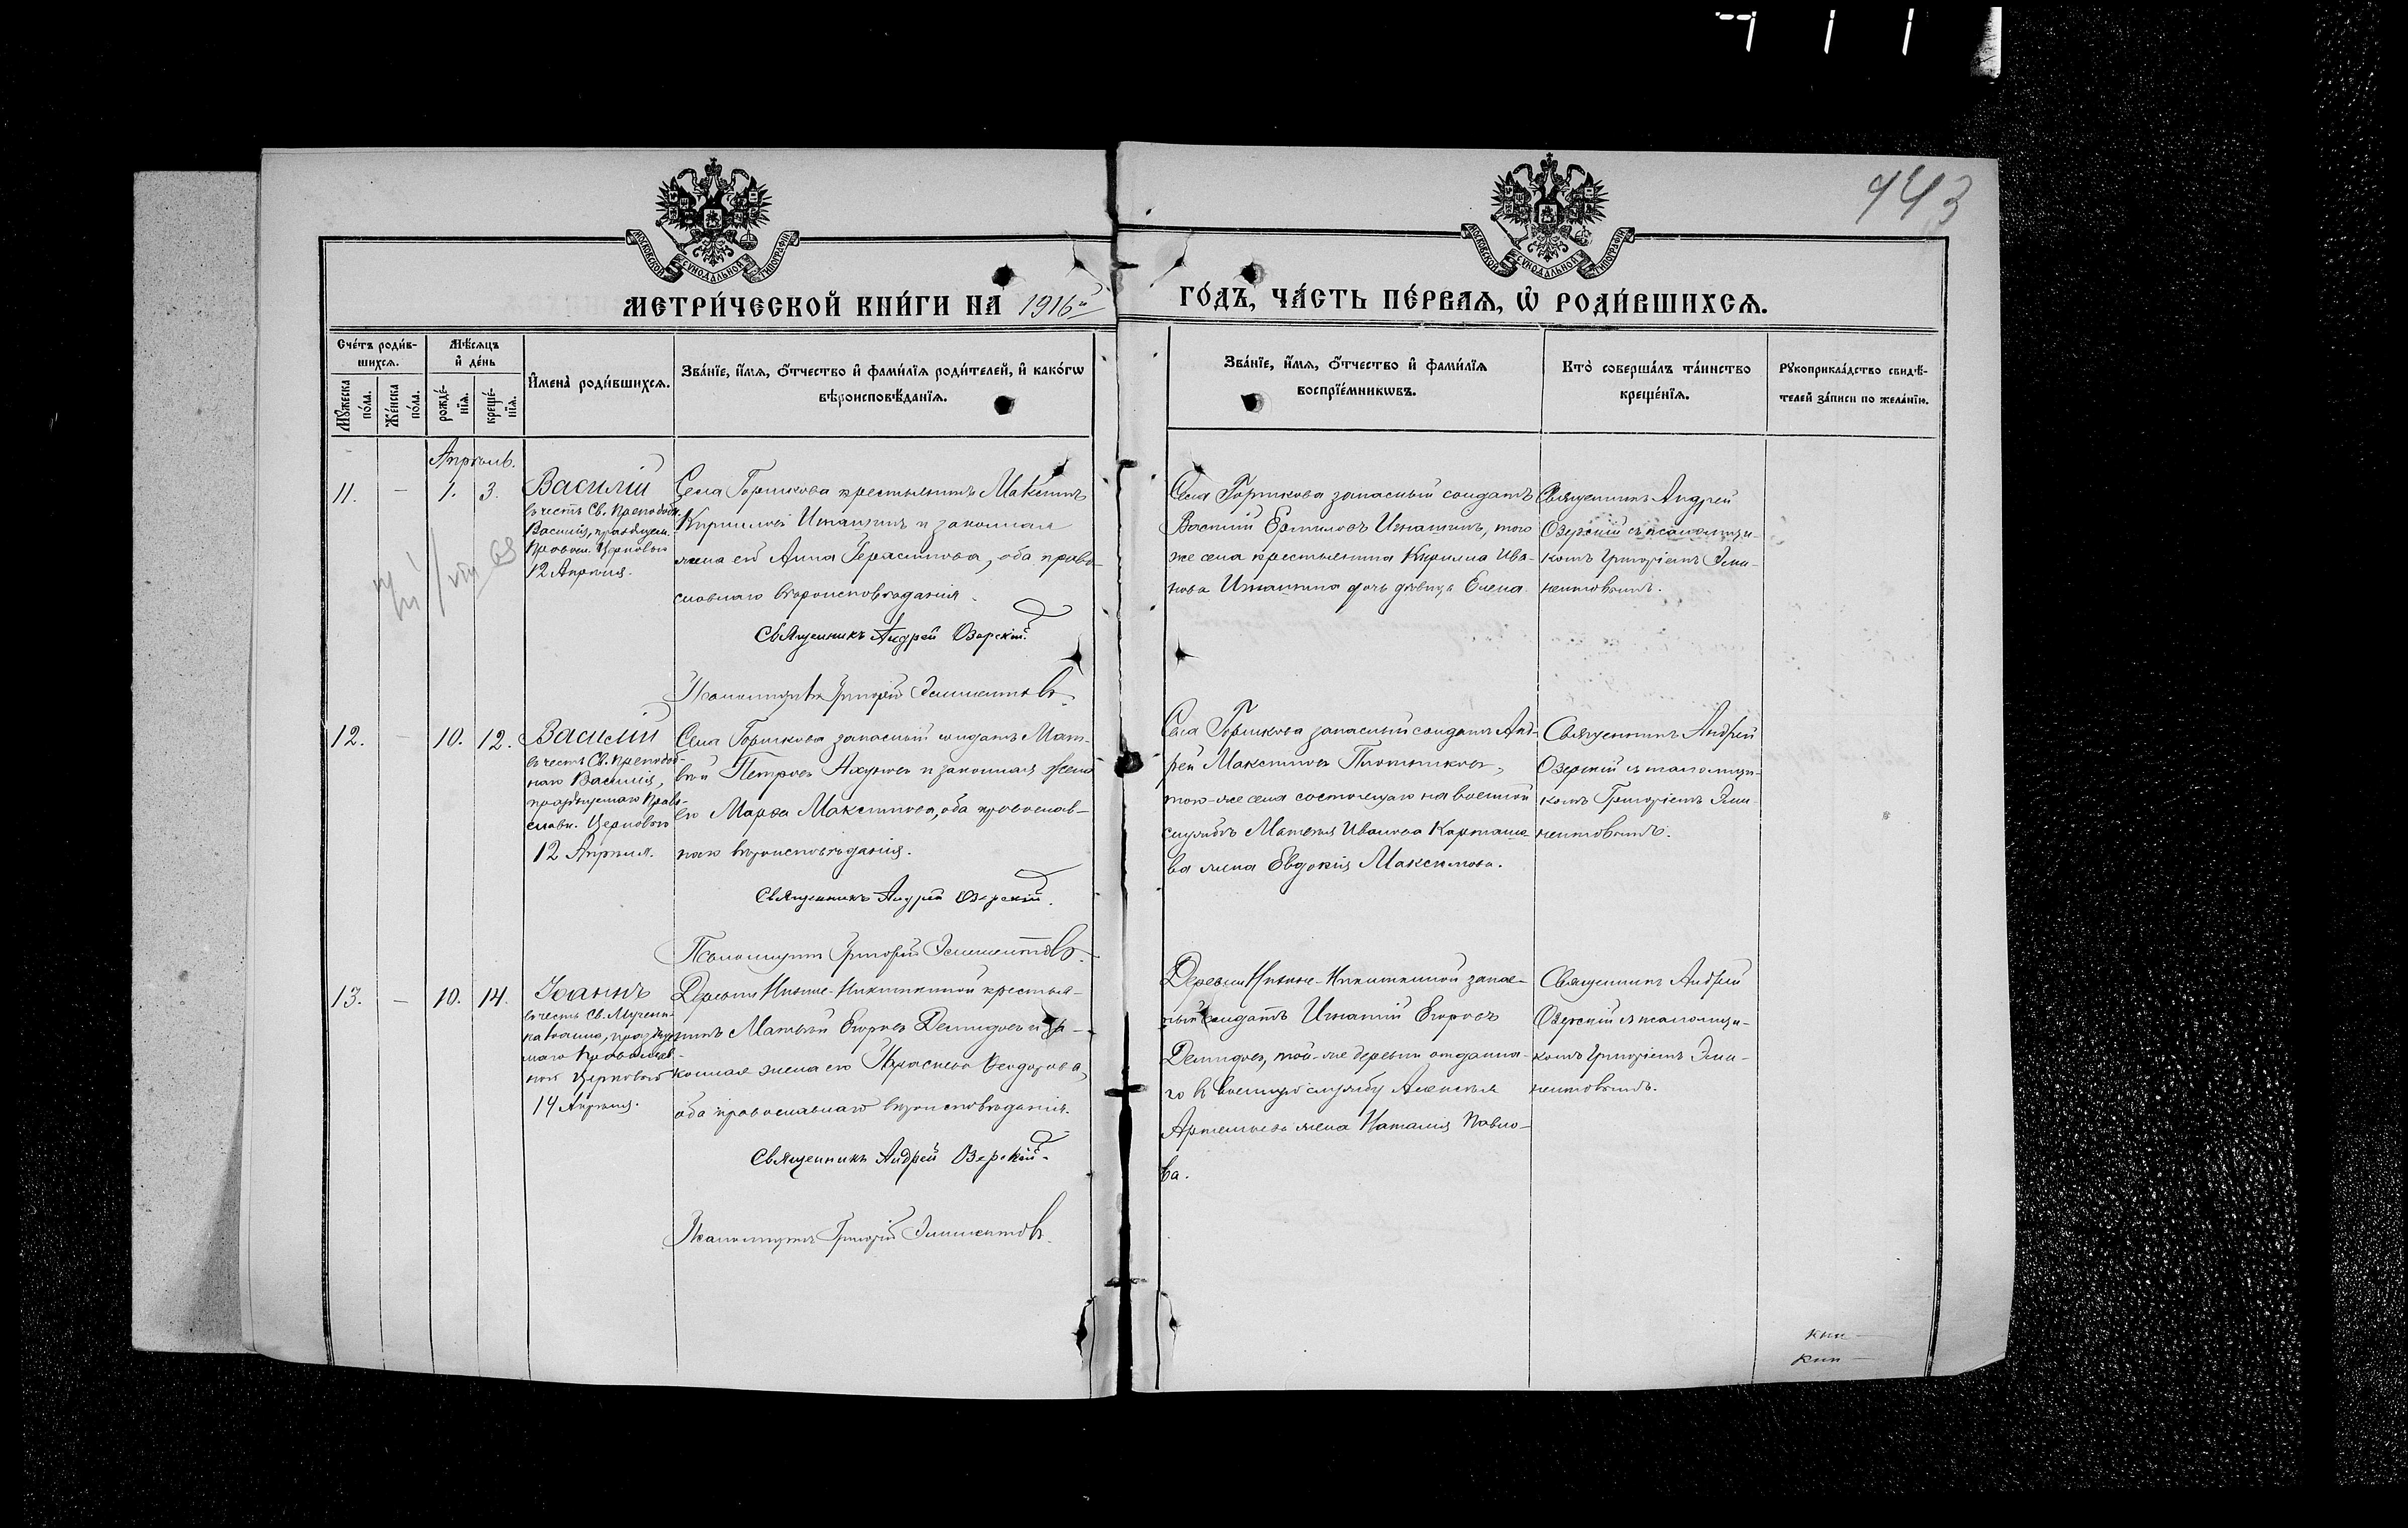 443
МОСКОВСКОЙ СѴНОДАЛЬНОЙ ТИПОГРАФІИ
МОСКОВСКОЙ СѴНОДАЛЬНОЙ ТИПОГРАФІИ
МЕТРИ́ЧЕСКОЙ КНИ́ГИ НА 1916й
ГО́ДЪ, ЧА́СТЬ ПЕ́РВАѦ, Ѽ РОДИ́ВШИХСѦ.
Сче́тъ роди́в-
шихсѧ.
Мꙋ́жеска
по́ла.
Же́нска
по́ла.
Мѣ́сѧцъ
и҆ де́нь
рожде́-
нїѧ.
креще́-
нїѧ.
И҆мена̀ роди́вшихсѧ.
Зва́нїе, и҆́мѧ, ѻ҆́тчество и҆ фами́лїѧ роди́телей, и҆ како́гѡ
вѣроисповѣ́данїѧ.
Зва́нїе, и҆́мѧ, ѻ҆́тчество и҆ фами́лїѧ
воспрїе́мникѡвъ.
Кто̀ соверша́лъ та́инство
креще́нїѧ.
Рꙋкоприкла́дство свидѣ́-
телей за́писи по жела́нїю.
Апрѣль.
11.
—
1.
3.
Василій
въ честь Св. Преподобн.
Василія, празднуем.
Правосл. Церковью
12 Апрѣля.
Села Горшкова крестьянинъ Максимъ
Кирилловъ Игнашинъ и законная
жена его Анна Герасимова, оба право-
славнаго вѣроисповѣданія.
Священникъ Андрей Озерскій.
Псаломщикъ Григорій Элементовъ.
Села Горшкова запасный солдатъ
Василій Ермиловъ Игнашинъ, того
же села крестьянина Кирилла Ива-
нова Игнашина дочь дѣвица Елена.
Священникъ Андрей
Озерскій съ псаломщи-
комъ Григоріемъ Эле-
ментовымъ.
12.
—
10.
12.
Василій
въ честь Св. Преподоб-
наго Василія,
празднуемаго Право-
славн. Церковью
12 Апрѣля.
Села Горшкова запасный солдатъ Мат-
вѣй Петровъ и законная жена
его Марѳа Максимова, оба православ-
наго вѣроисповѣданія.
Священникъ Андрей Озерскій.
Псаломщикъ Григорій Элементовъ.
Села Горшкова запасный солдатъ Анд-
рей Максимовъ Плотниковъ,
того-же села состоящаго на военной
службѣ Матвѣя Иванова Карташе-
ва жена Евдокія Максимова.
Священникъ Андрей
Озерскій съ псаломщи-
комъ Григоріемъ Эле-
ментовымъ.
13.
—
10.
14.
Іоаннъ
въ честь Св. Мучени-
ка Іоанна, празднуе-
маго Православ-
ной Церковью
14 Апрѣля.
Деревни Нижне-Никиткиной крестья-
нинъ Матвѣй Егоровъ Демидовъ и за-
конная жена его Параскева Ѳеодорова,
оба православнаго вѣроисповѣданія.
Священникъ Андрей Озерскій.
Псаломщикъ Григорій Элементовъ.
Деревни Нижне-Никиткиной запас-
ный солдатъ Игнатій Егоровъ
Демидовъ, той-же деревни отданна-
го въ военную службу Алексѣя
Артемьева жена Наталія Павло-
ва.
Священникъ Андрей
Озерскій съ псаломщи-
комъ Григоріемъ Эле-
ментовымъ.